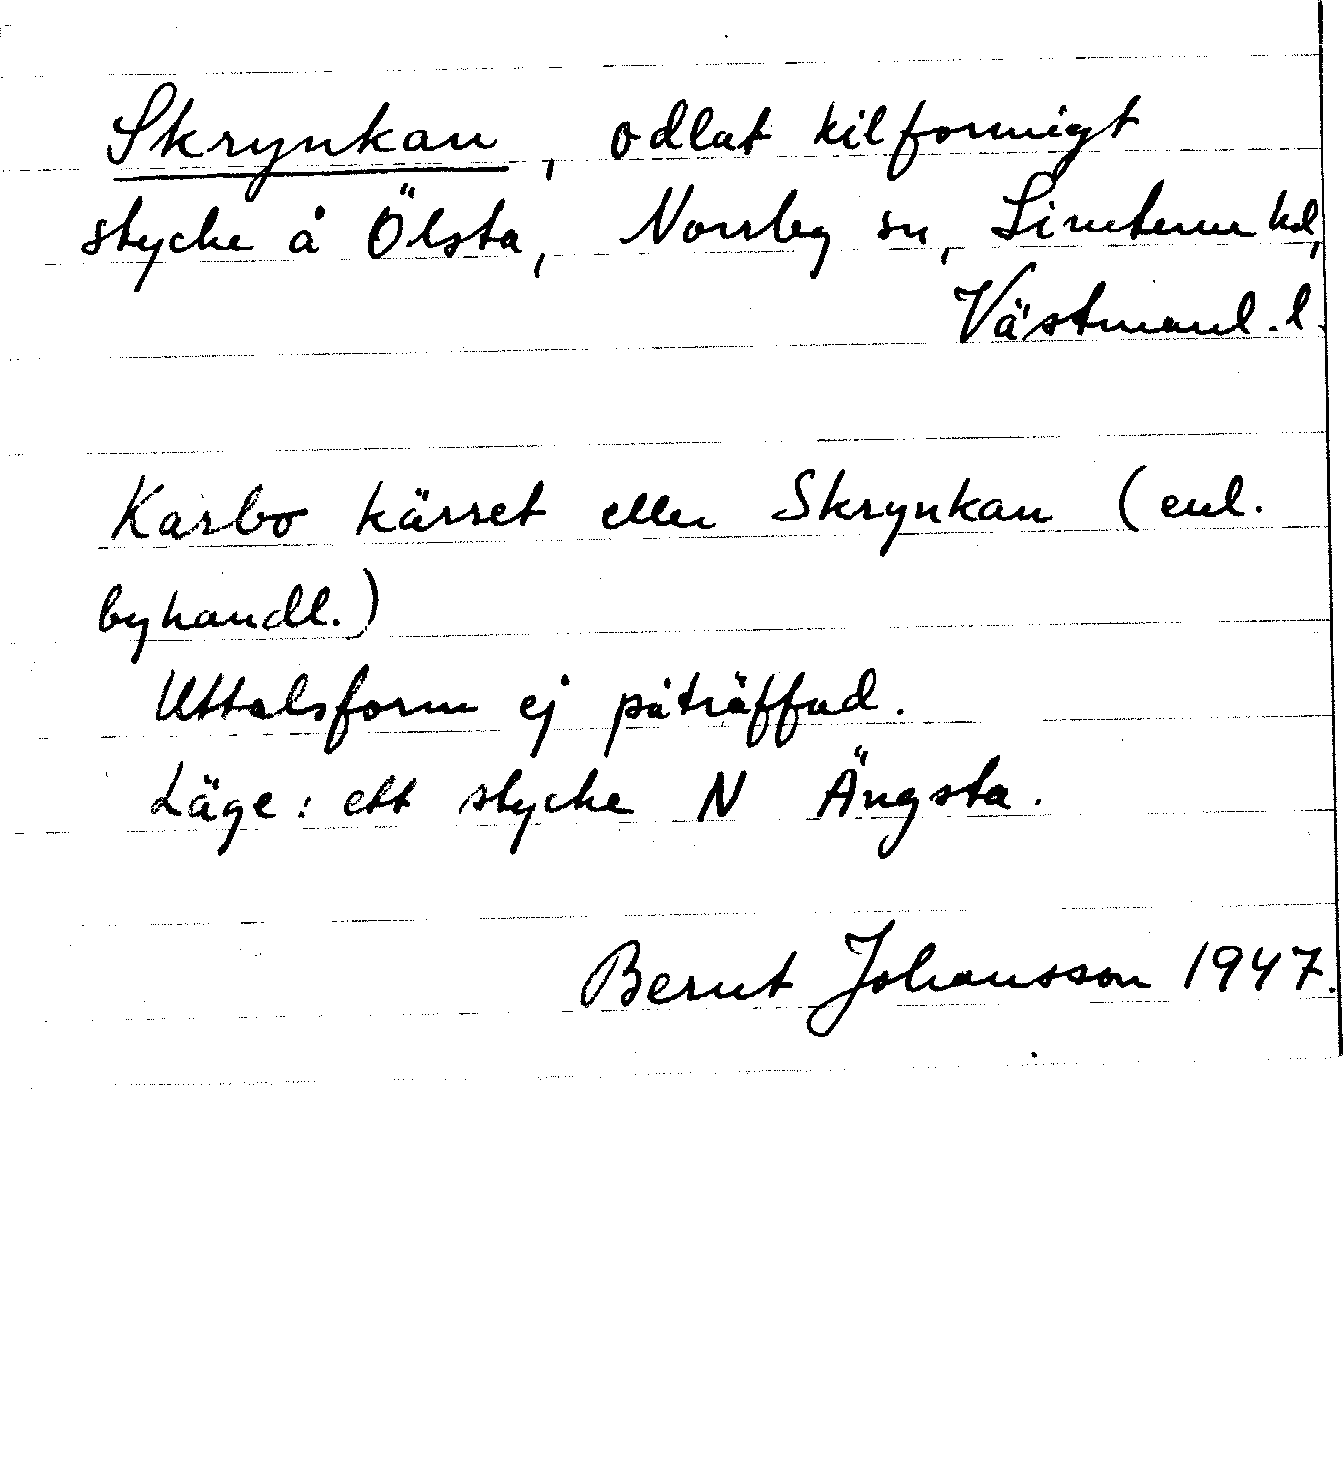 Skrynkan, odlat kilformigt
stycke å Ölsta, Norrby sn, Simtuna hd,
Västmanl. l.
Karbo kärret eller Skrynkan (enl.
byhandl.)
Uttalsform ej påträffad.
Läge: ett stycke N Ängsta.
Bernt Johansson 1947.